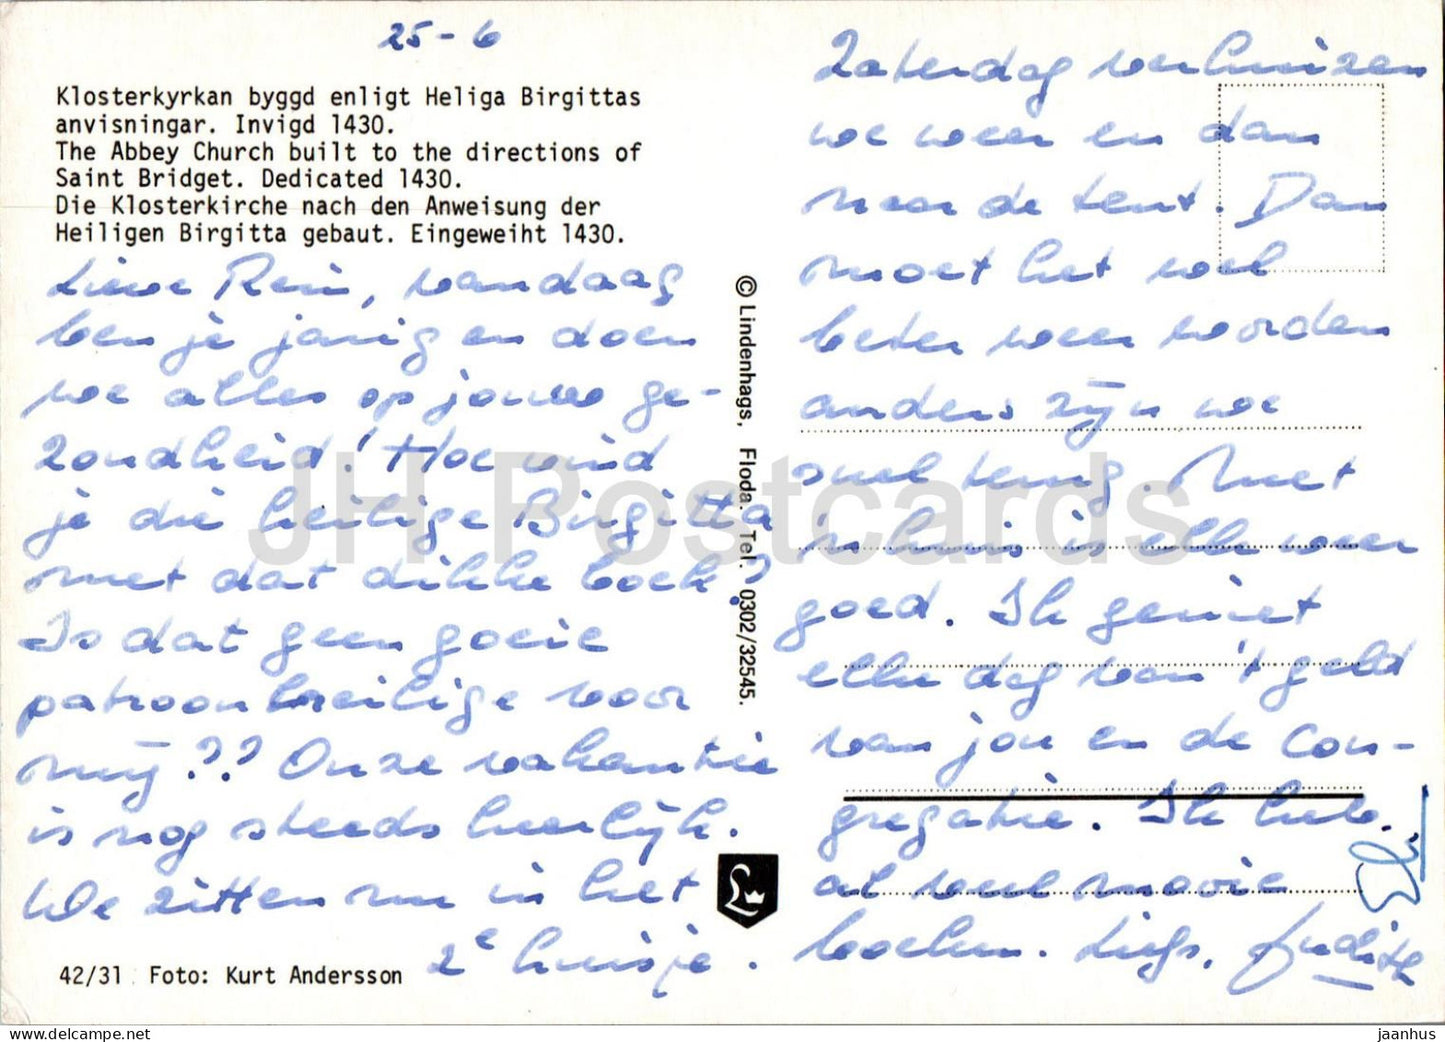 25-6
Klosterkyrkan byggd enligt Heliga Birgittas
anvisningar. Invigd 1430.
The Abbey Church built to the directions of
Saint Bridget. Dedicated 1430.
Die Klosterkirche nach den Anweisung der
Heiligen Birgitta gebaut. Eingeweiht 1430.
Lieve Rein, vandaag
ben je jarig en doen
we alles op jouw ge-
zondheid! Hoe vind
je die heilige Birgitta
met dat dikke boek?
Is dat geen goeie
patroonheilige voor
mij?? Onze vakantie
is nog steeds heerlijk.
We zitten nu in het
2e huisje.
42/31 Foto: Kurt Andersson
© Lindenhags, Floda. Tel. 0302/32545.
Zaterdag verhuizen
we weer en dan
naar de tent. Dan
moet het wel
beter weer worden
anders zijn we
snel terug. Met
's huis is alles weer
goed. Ik geniet
elke dag van 't geld
van jou en de con-
gregatie. Ik heb
al veel mooie
boeken. Liefs, Judith
JH Postcards
jaanhus | delcampe.net